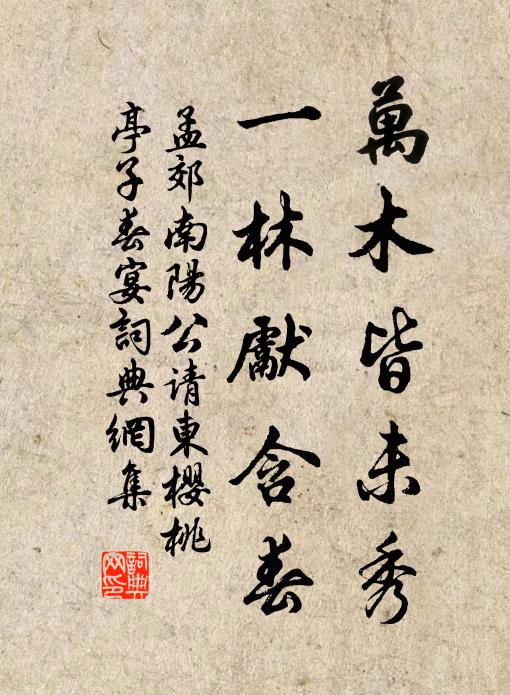 萬木皆未秀
一林獻含春
孟郊南陽公请東櫻桃
亭子春宴詞典網集
詞典网印